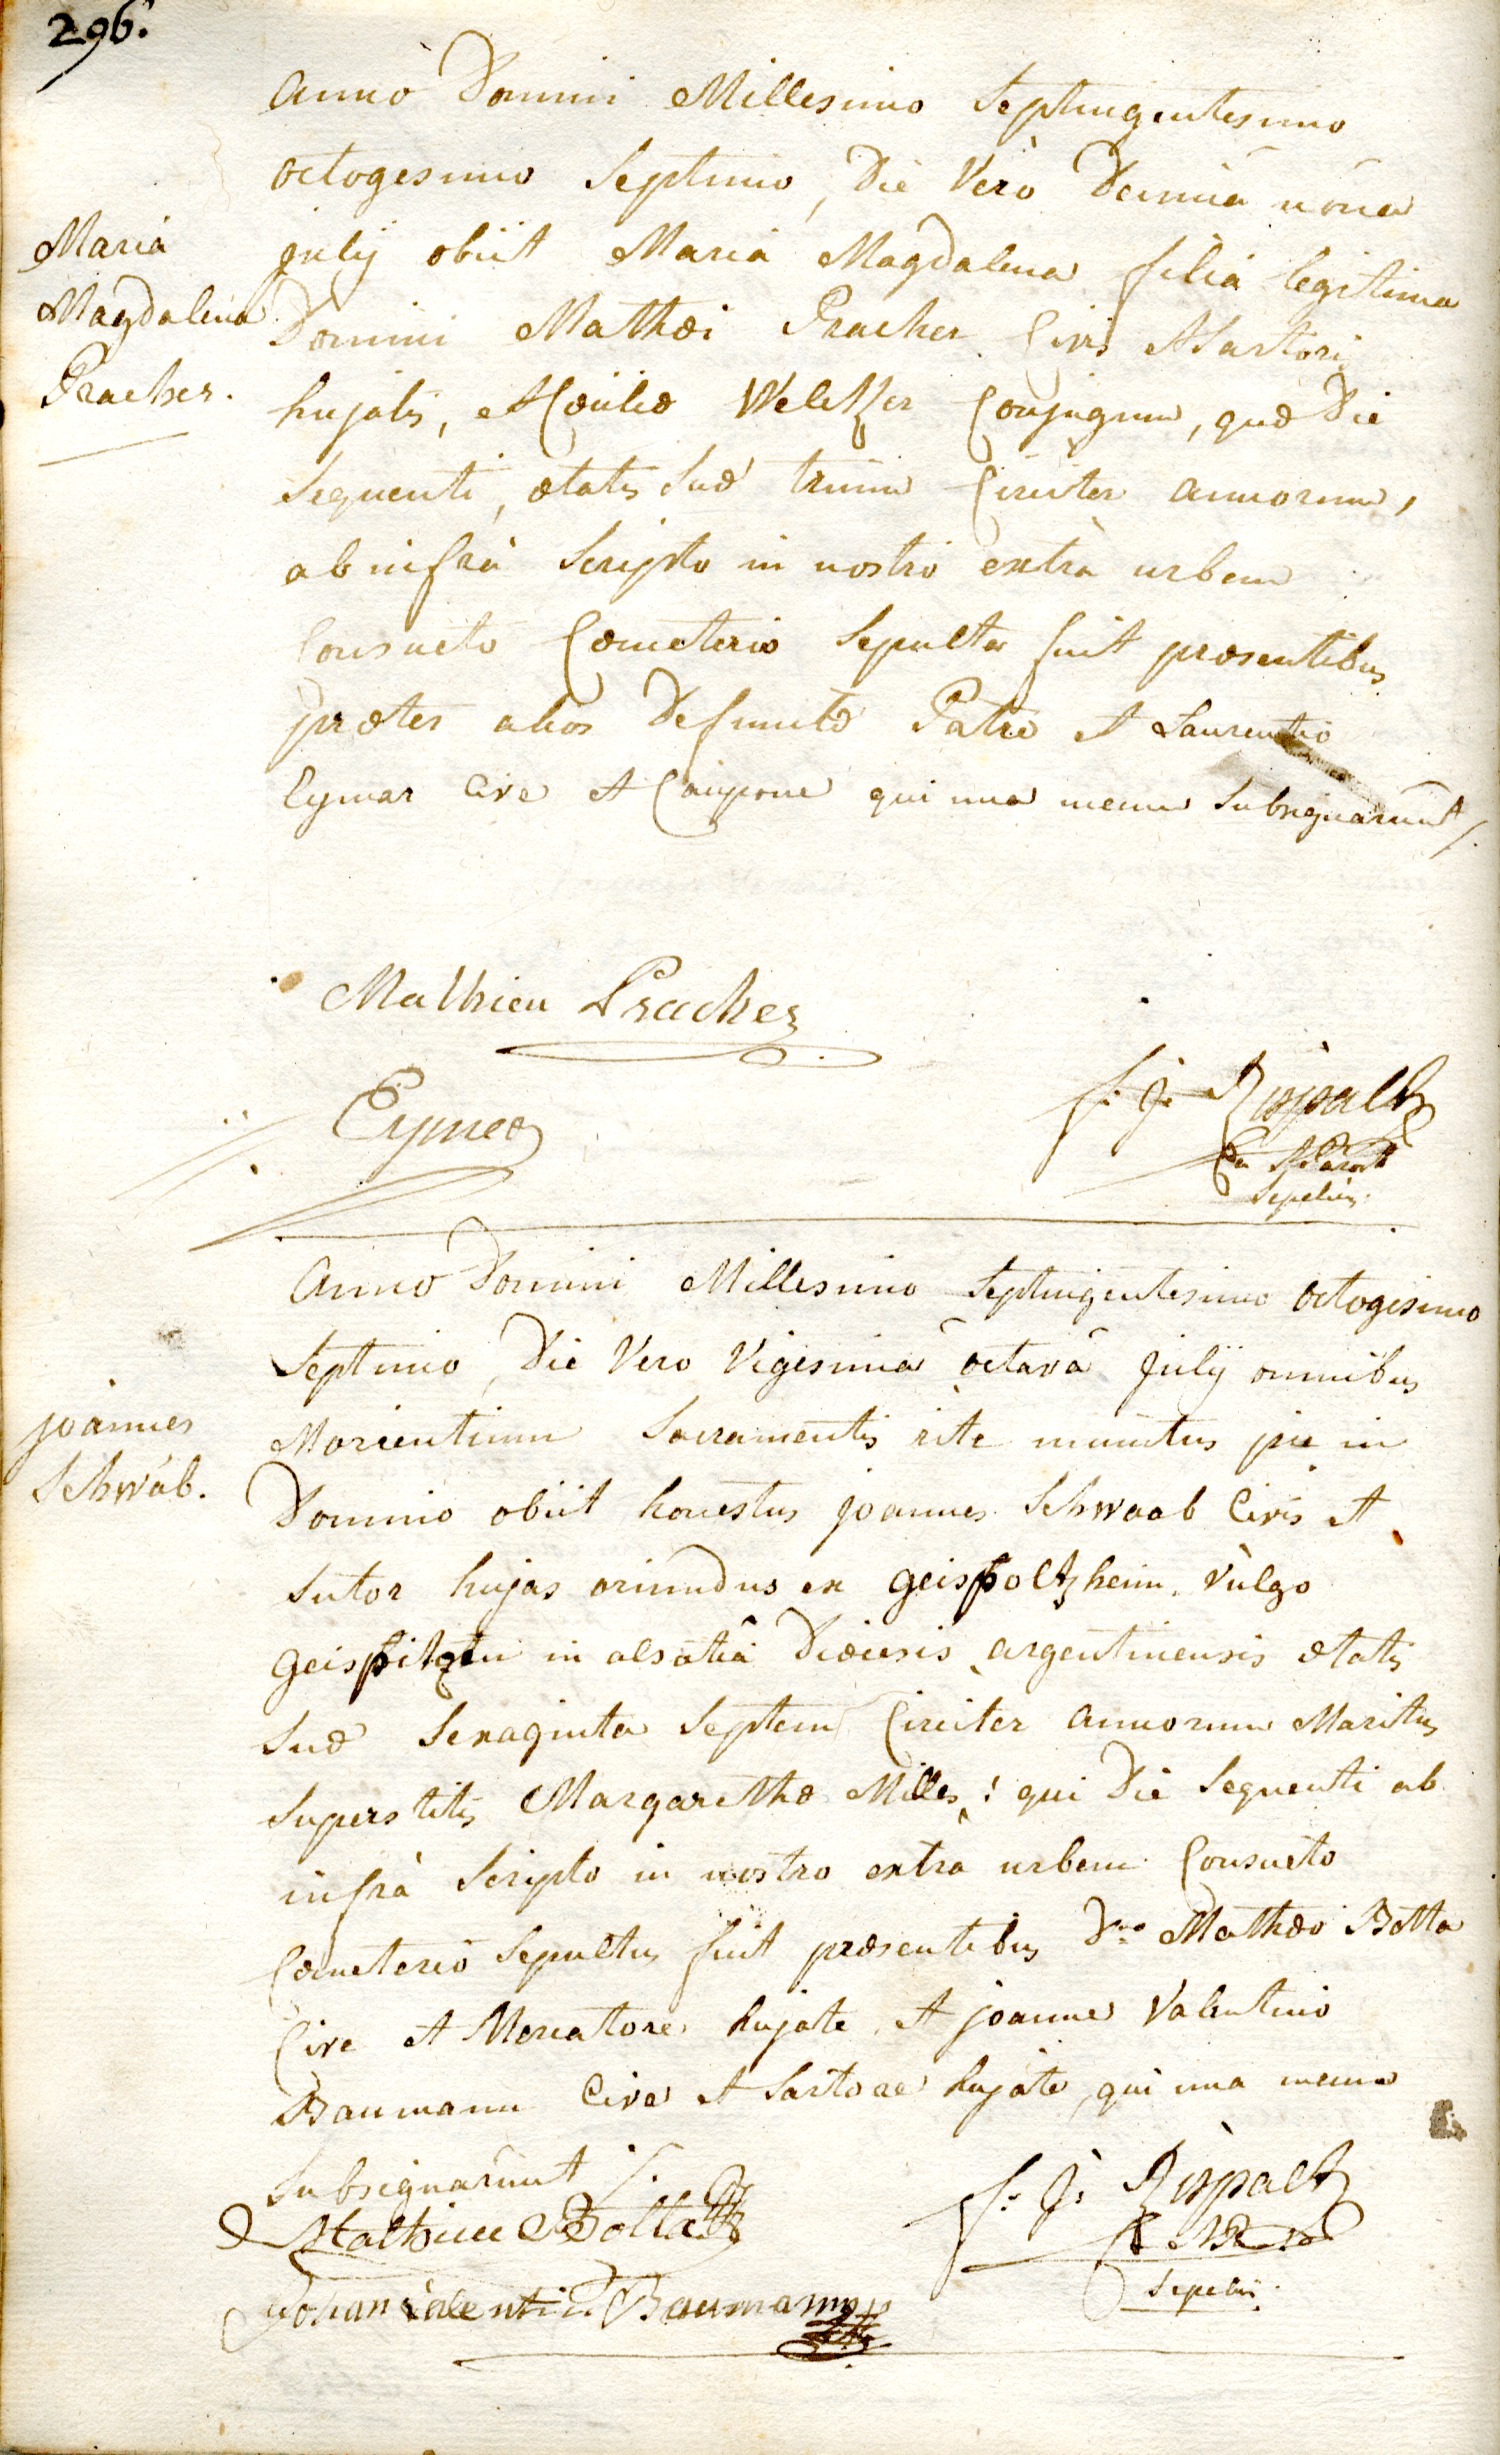 296.
Anno Domini Millesimo Septingentesimo
octogesimo Septimo, Die Verò Decimâ nonâ
Maria
Magdalena
Pracher.
julij obiit Maria Magdalena filia legitima
Domini Mathæi Pracher Civis et Sartoris
hujatis, et Cæciliæ Conjugum, quæ Die
Sequenti, ætatis Suæ trium Circiter annorum,
ab infrà Scripto in nostro extrà urbem
Consueto Cœmeterio Sepulta fuit præsentibus
præter alios Defunctæ Patre et Laurentio
Eymar Cive et Caupone qui una mecum Subsignarunt /.
Mathieu Pracher
Eymar
f. j. Rispalt
Sepeliens.
Anno Domini Millesimo Septingentesimo octogesimo
Septimo, Die Vero Vigesimâ octavâ julij omnibus
joannes
Schwab.
Morientium Sacramentis rite munitus pie in
Domino obiit honestus joannes Schwaab Civis et
Sutor hujas oriundus ex geispoltzheim. vùlgo
geispitzen in alsatiâ Diœcesis argentinensis ætatis
Suæ Sexaginta Septem Circiter annorum Maritus
Superstitis Margarethæ Milles; qui Die Sequenti ab
infrà Scripto in nostro extrà urbem Consueto
Cœmeterio Sepultus fuit præsentibus Dno Mathæo Botta
Cive et Mercatore hujate et joanne Valentino
Baumann Cive et Sartore hujate, qui una mecum
Subsignarunt /.
Mathieu Botta
Johan Valentin Baumann
f. j. Rispalt
Sepeliens.